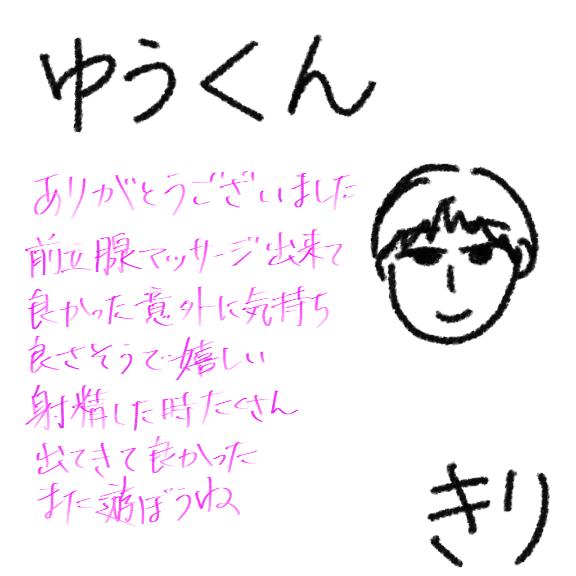 ゆうくん
ありがとうございました
前立腺マッサージ出来て
良かった意外に気持ち
良さそうで嬉しい
射精した時たくさん
出てきて良かった
また遊ぼうね
きり